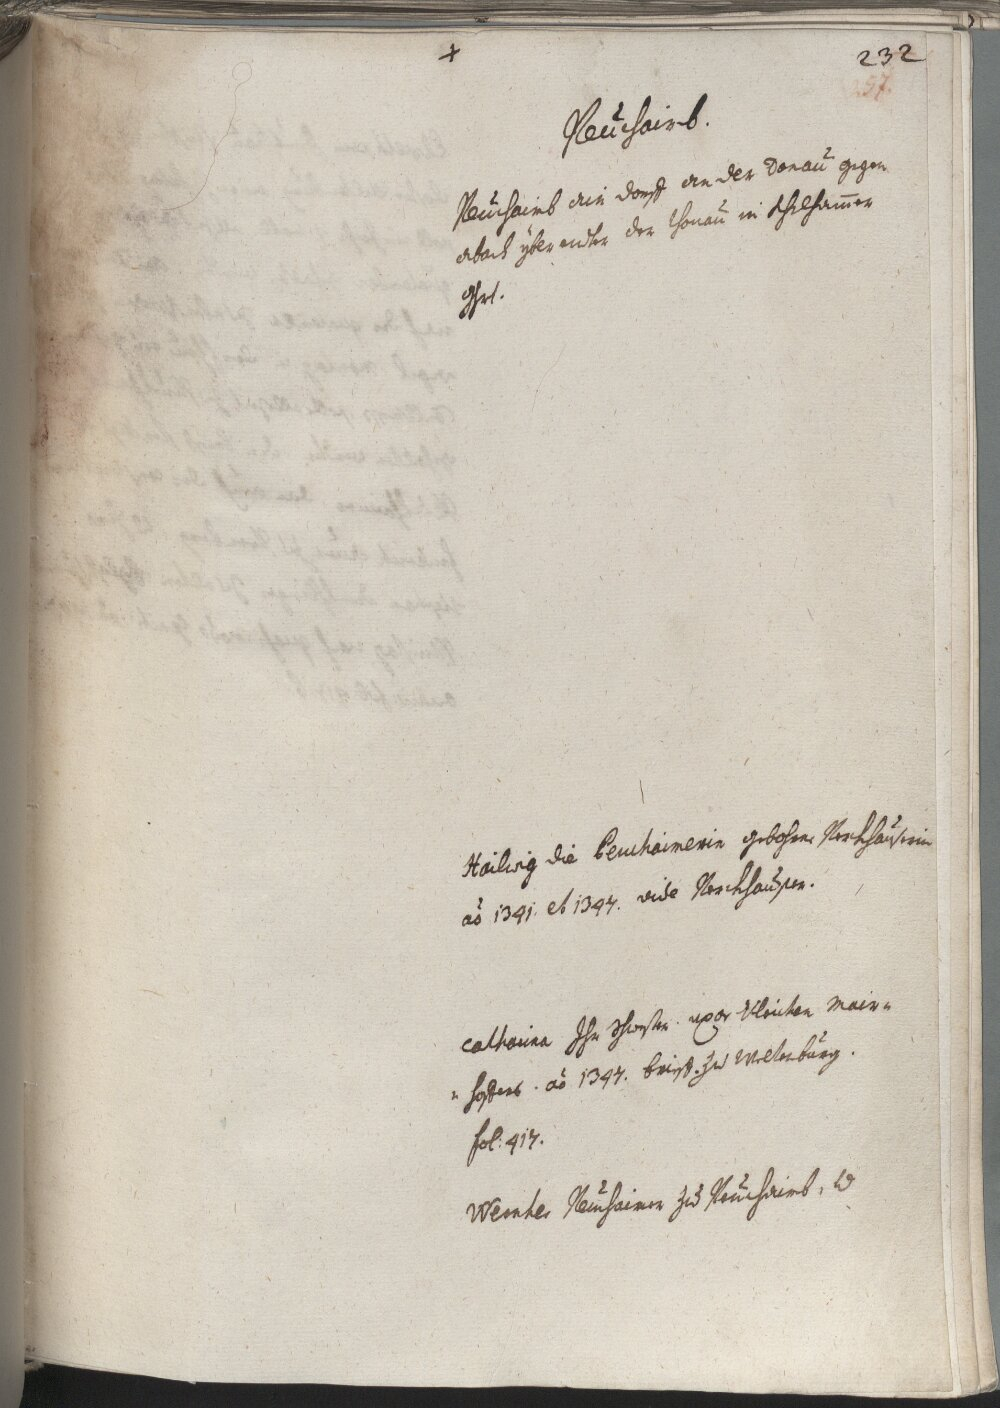 + 232
57.
Neuhaimb.
Neuhaimb ain dorff an der Donau gegen
abach yber enther der thonau in Khelhaimer
Ghrt.
Hailwig die Peuchaimerin gebohrne Norkhauserin
ao 1341. et 1347. vide Norkhauser.
Catharina Ihr schwester. uxor Ulrichen Mair-
-hoffers. ao 1347. brieff. zu Weltenburg.
fol: 417.
Wernher Neuhaimer zu Neuhaimb,